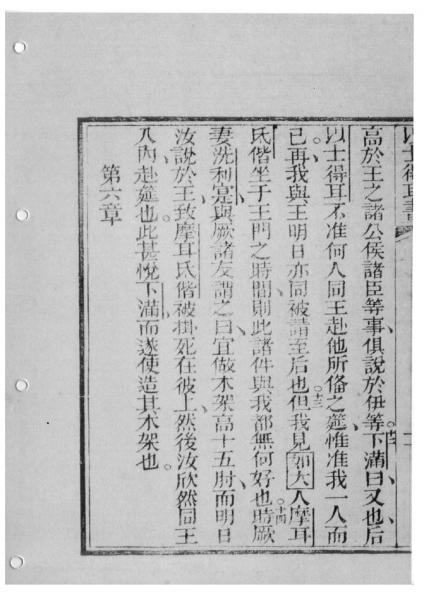 以士得耳書
高於王之諸公侯諸臣等事俱說於伊等。十二下滿曰又也后
以士得耳不准何人同王赴他所俻之筵惟准我一人而
已再我與王明日亦同被請至后也。十三但我見如大人摩耳
氏偕坐于王門之時間則此諸件與我都無何好也。十四時厥
妻洗利寔與厥諸友謂之曰宜做木架高十五肘而明日
汝說於王致摩耳氏偕被掛死在彼上然後汝欣然同王
入內赴筵也。此甚悅下滿而遂使造其木架也。
第六章